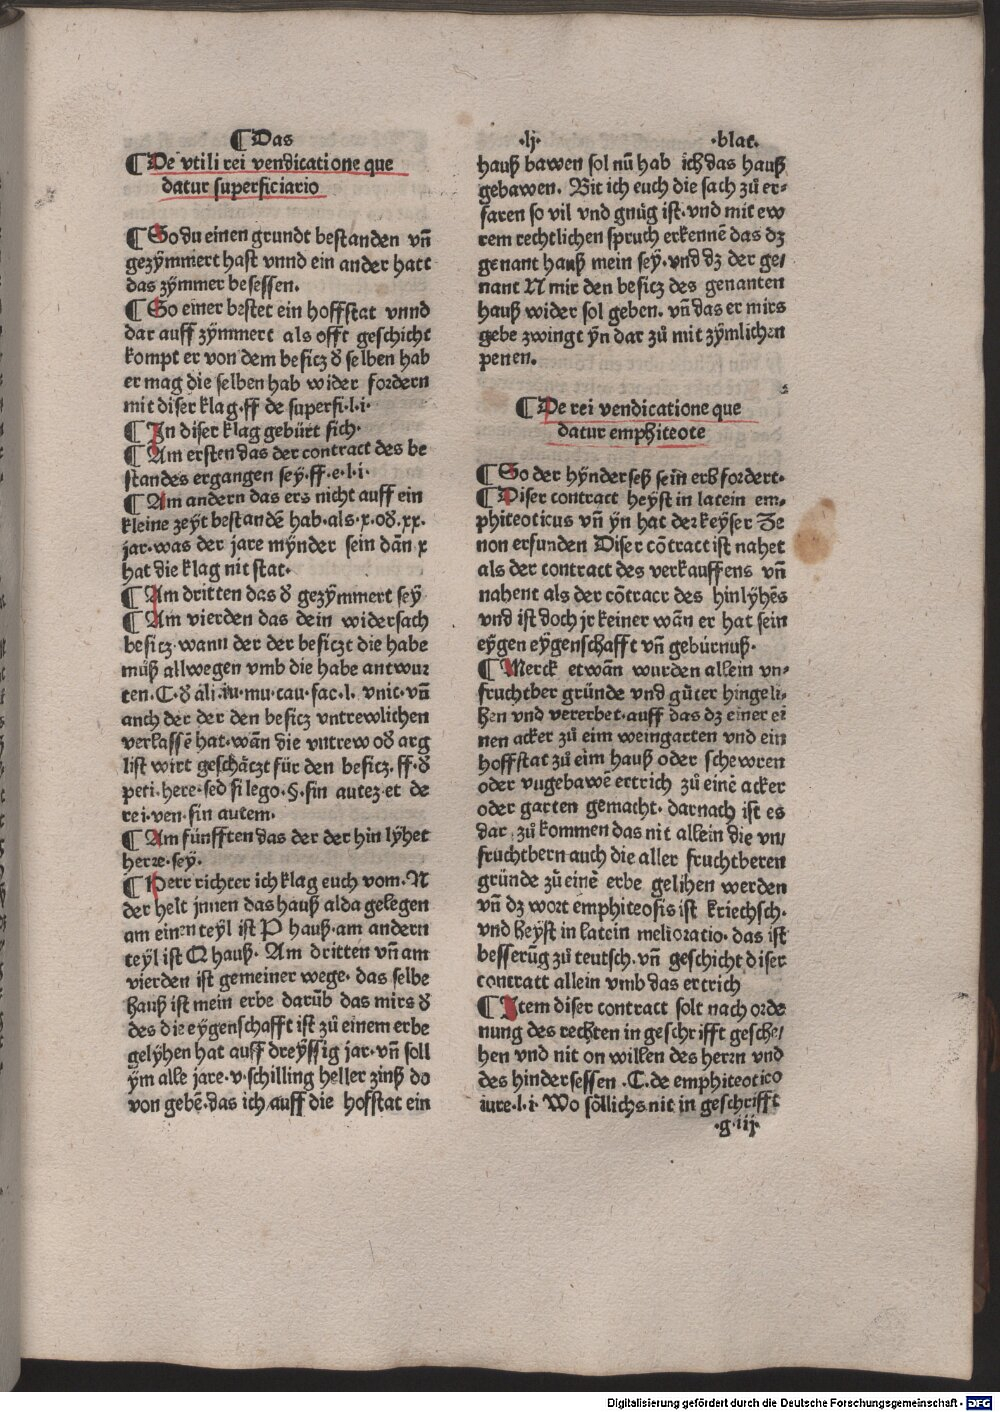 ¶ Das
¶ De vtili rei vendicatione que
datur superficiario
¶ So du einen grundt bestanden vn̄
gezymmert hast vnnd ein ander hatt
das zymmer besessen.
¶ So einer bestet ein hoffstat vnnd
dar auff zymmert als offt geschicht
kompt er von dem besicz d̕ selben hab
er mag die selben hab wider fordern
mit diser klag. ff de superfi. l. i.
¶ In diser klag gebürt sich.
¶ Am ersten das der contract des be
standes ergangen sey. ff. e. l. i.
¶ Am andern das ers nicht auff ein
kleine zeyt bestandē hab. als. x. od̕. xx.
jar. was der jare mynder sein dān x
hat die klag nit stat.
¶ Am dritten das d̕ gezymmert sey
¶ Am vierden das dein widersach
besicz. wann der der besiczt die habe
müß allwegen vmb die habe antwur
ten. C. d̕ ali. iu. mu. cau. fac. l. vnit. vn̄
anch der der den besicz vntrewlichen
verlassē hat. wān die vntrew od̕ arg
list wirt geschäczt für den besicz. ff. d̕
peti. here. sed si lego. §. sin autez. et de
rei. ven. sin autem.
¶ Am fünfften das der der hin lyhet
herre. sey.
¶ Herr richter ich klag euch vom. N
der helt jnnen das hauß alda gelegen
am einen teyl ist P hauß. am andern
teyl ist Q hauß. Am dritten vn̄ am
vierden ist gemeiner wege. das selbe
hauß ist mein erbe darūb das mirs d̕
des die eygenschafft ist zů einem erbe
gelyhen hat auff dreyssig jar. vn̄ soll
ym alle jare. v. schilling heller zinß do
von gebē. das ich auff die hofstat ein
.lj. .blat.
hauß bawen sol nū hab ich das hauß
gebawen. Bit ich euch die sach zů er-
faren so vil vnd gnůg ist. vnd mit ew
rem rechtlichen spruch erkennē das dz
genant hauß mein sey. vnd dz der ge/
nant N mir den besicz des genanten
hauß wider sol geben. vn̄ das er mirs
gebe zwingt yn dar zů mit zymlichen
penen.
¶ De rei vendicatione que
datur emphiteote
¶ So der hynderseß sein erb fordert.
¶ Diser contract heyst in latein em-
phiteoticus vn̄ yn hat der keyser Ze
non erfunden Diser cōtract ist nahet
als der contract des verkauffens vn̄
nahent als der cōtracr des hinlyhēs
vnd ist doch jr keiner wān er hat sein
eygen eygenschafft vn̄ gebürnuß.
¶ Merck etwān wurden allein vn-
fruchtber gründe vnd gůter hingeli-
hen vnd vererbet. auff das dz einer ei
nen acker zů eim weingarten vnd ein
hoffstat zů eim hauß oder schewren
oder vugebawē ertrich zů einē acker
oder garten gemacht. darnach ist es
dar zů kommen das nit allein die vn/
fruchtbern auch die aller fruchtberen
gründe zů einē erbe gelihen werden
vn̄ dz wort emphiteosis ist kriechsch.
vnd heyst in latein melioratio. das ist
besserūg zů teutsch. vn̄ geschicht diser
contract allein vmb das ertrich
¶ Item diser contract solt nach orde
nung des rechten in geschrifft gesche/
hen vnd nit on willen des herrn vnd
des hindersessen. C. de emphiteotico
iure. l. i. Wo söllichs nit in geschrifft
.g. iij.
Digitalisierung gefördert durch die Deutsche Forschungsgemeinschaft - DFG